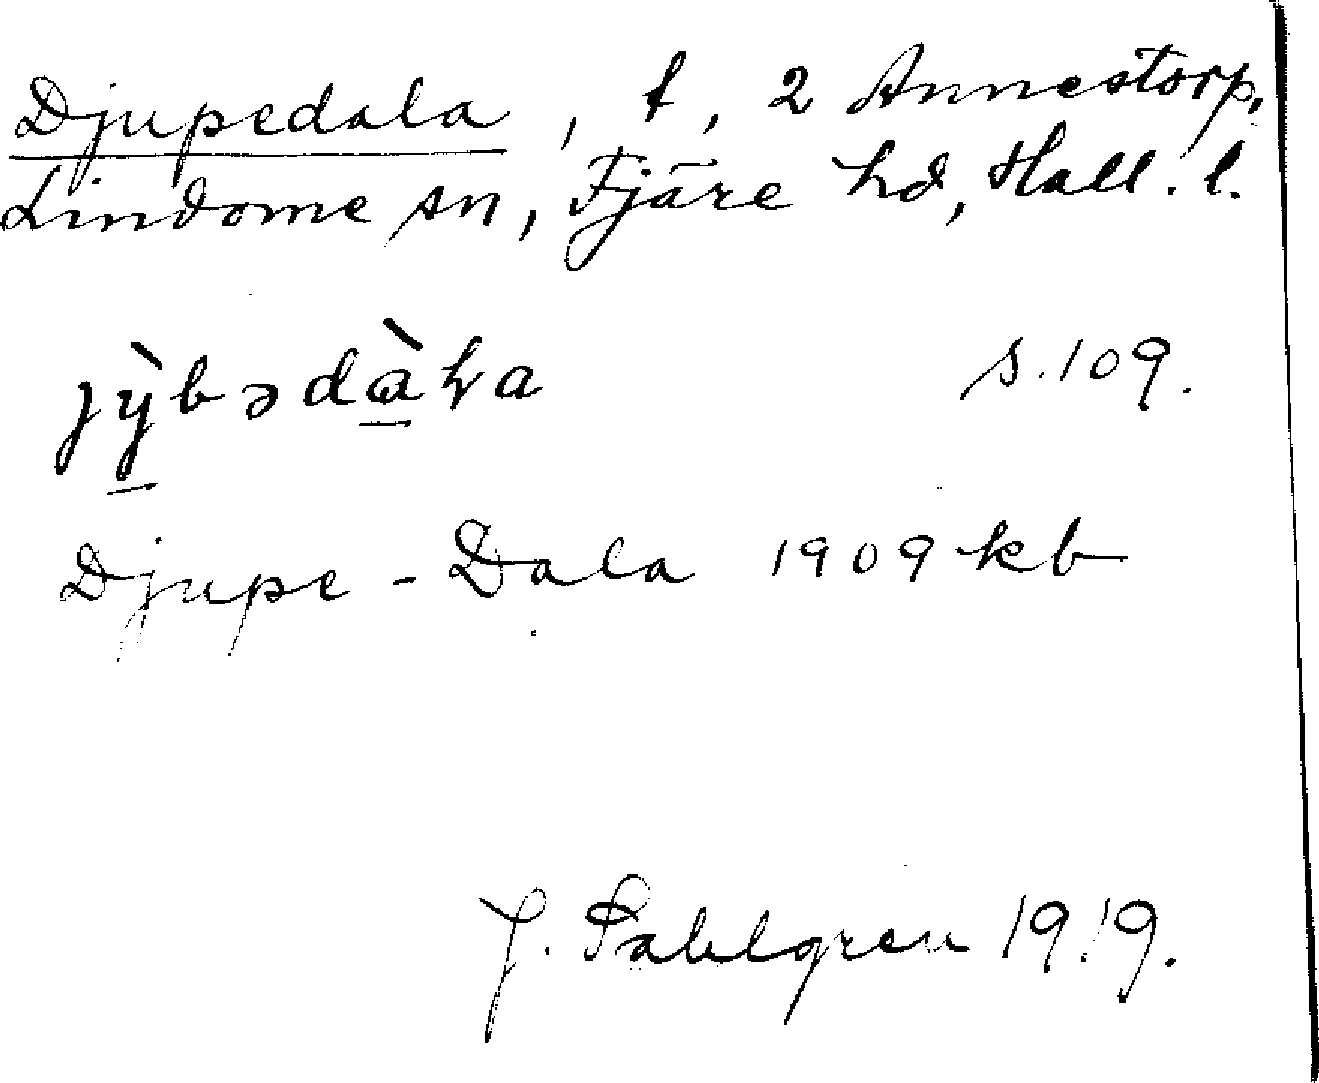 Djupedala, t, 2 Annestorp,
Lindome sn, Fjäre hd, Hall. l.
jỳ̠bədà̠ɫa s. 109.
Djupe-Dala 1909 kb
J. Sahlgren 1919.